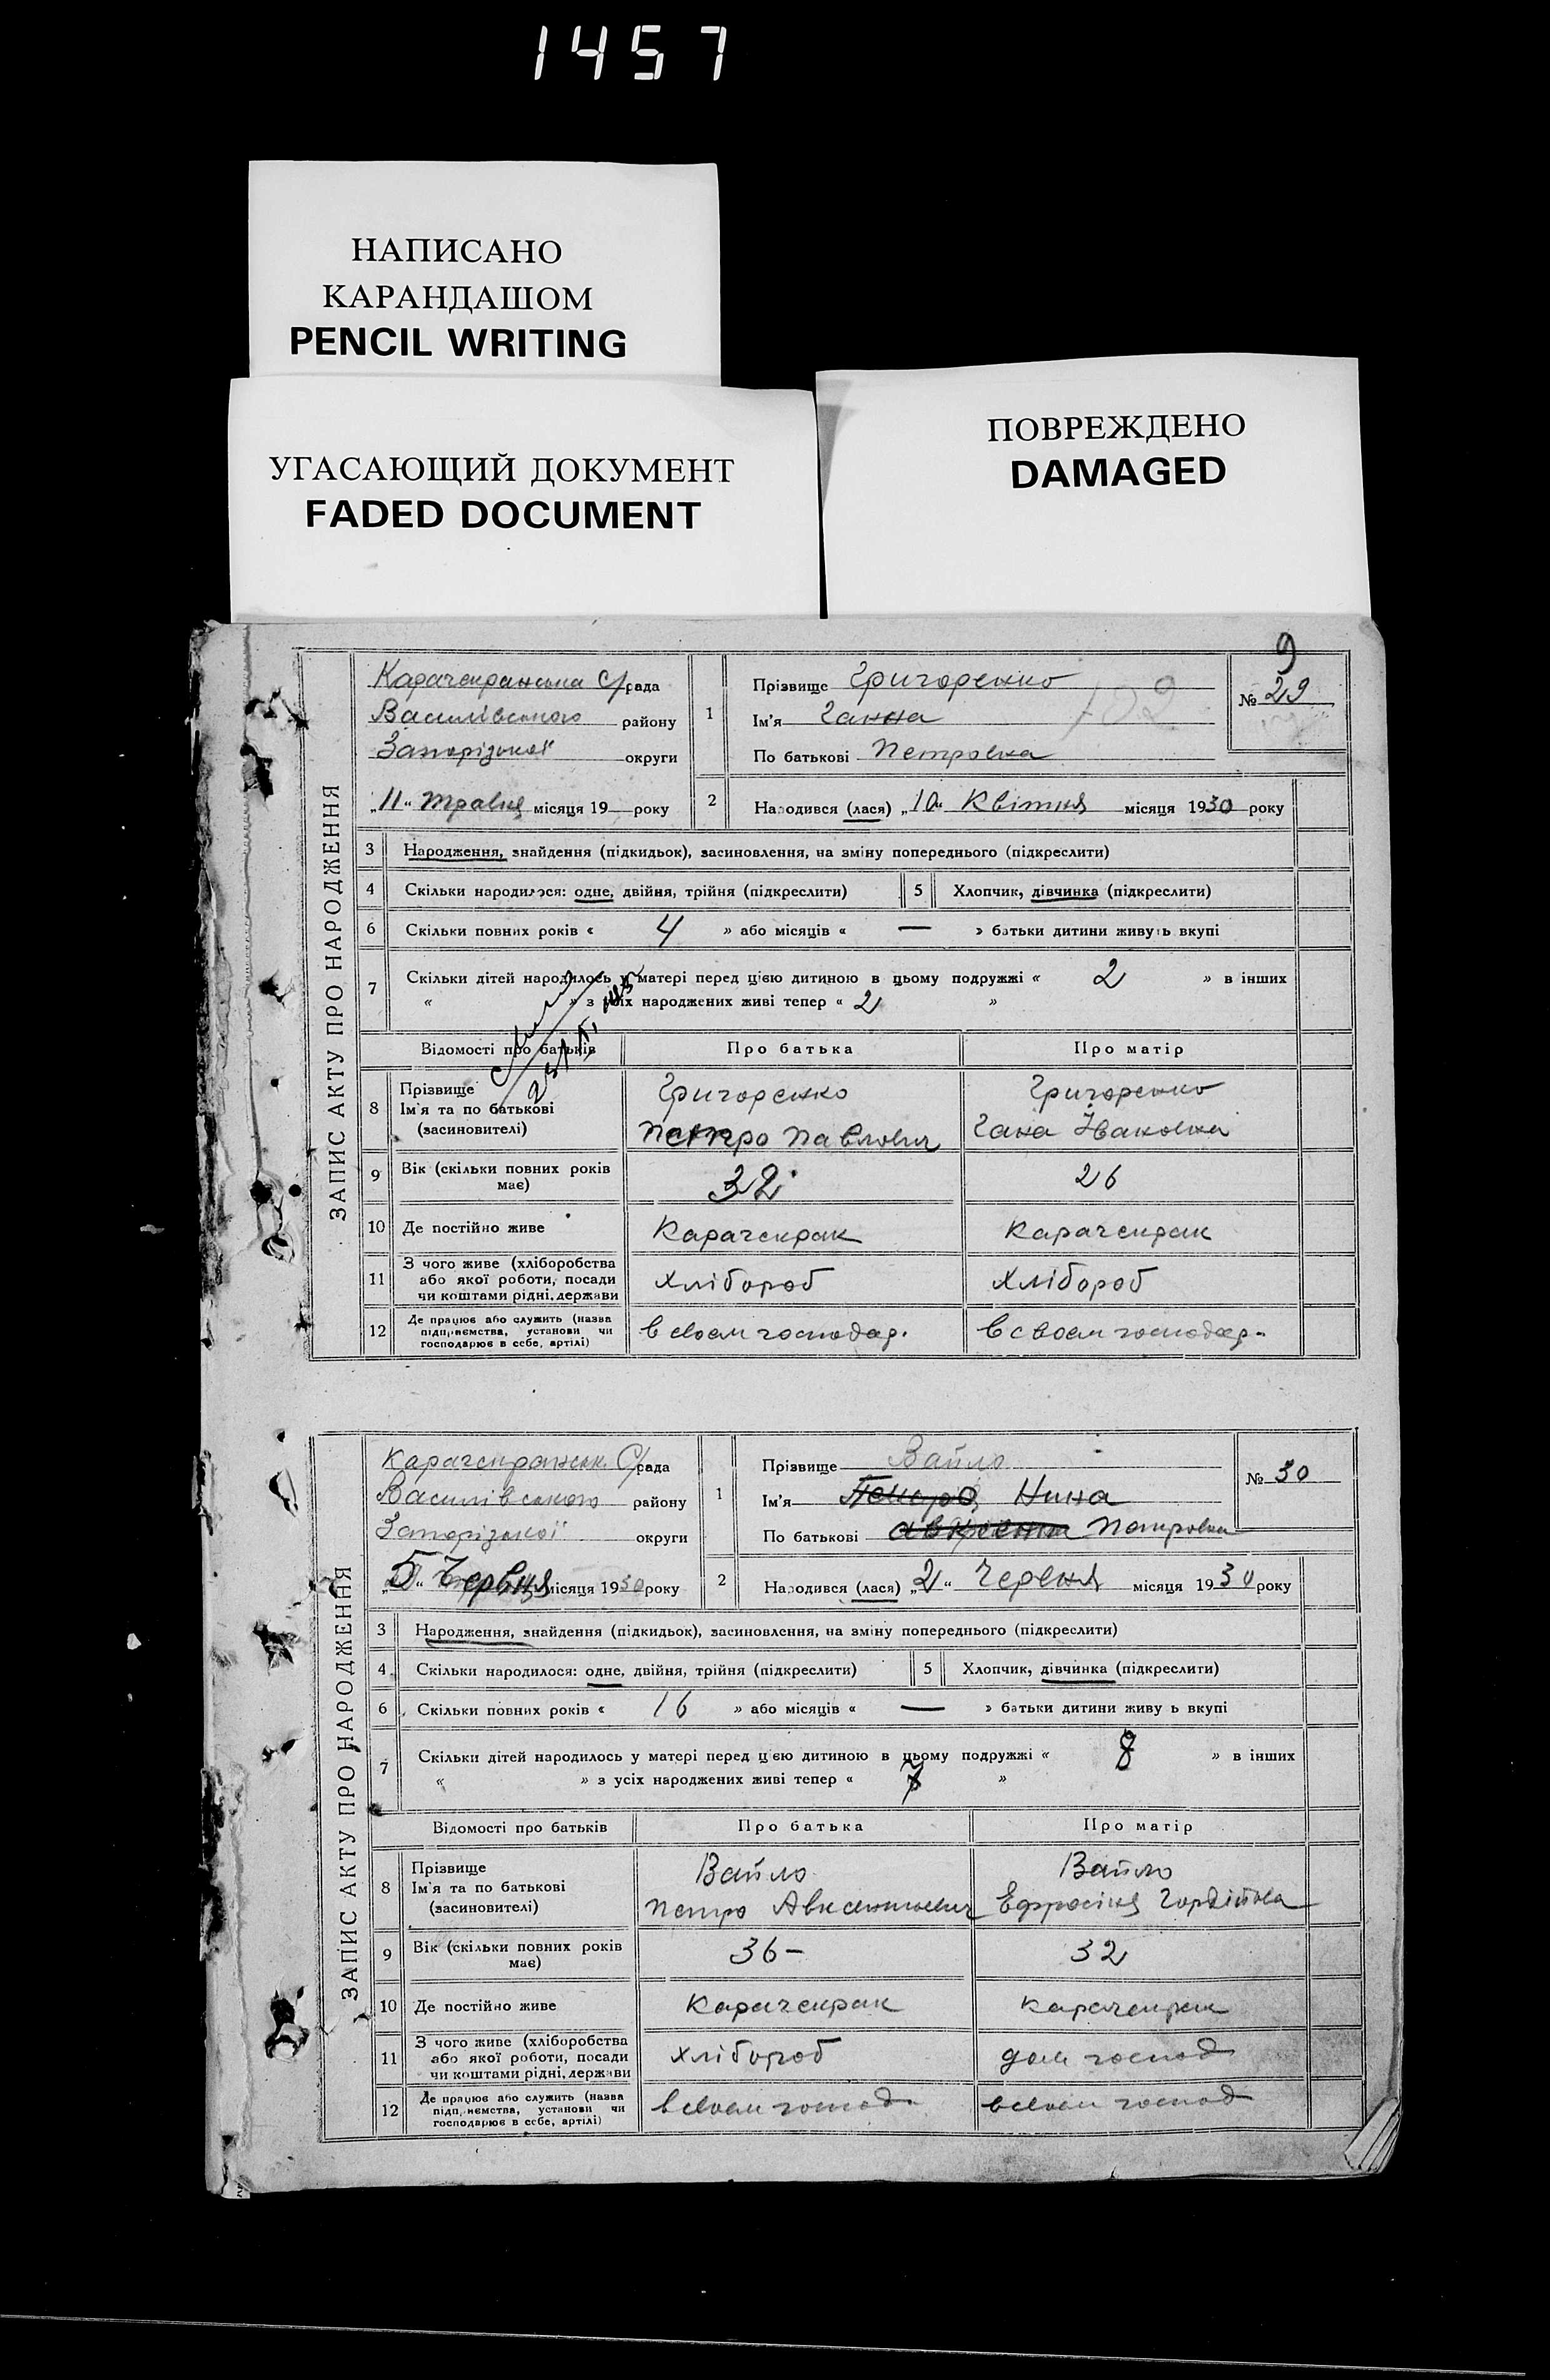 1457
НАПИСАНО
КАРАНДАШОМ
PENCIL WRITING
УГАСАЮЩИЙ ДОКУМЕНТ
FADED DOCUMENT
ПОВРЕЖДЕНО
DAMAGED
9
ЗАПИС АКТУ ПРО НАРОДЖЕННЯ
Карачекранська С/рада
Василівського району
Запорізької округи
„11“ травня місяця 19 року
1
Прізвище Григоренко
Ім'я Ганна
По батькові Петровна
102
№ 29
2 Народився (лася) „10“ Квітня місяця 1930 року
3 Народження, знайдення (підкидьок), засиновлення, на зміну попереднього (підкреслити)
4 Скільки народилося: одне, двійня, трійня (підкреслити) 5 Хлопчик, дівчинка (підкреслити)
6 Скільки повних років « 4 » або місяців « — » батьки дитини живуть вкупі
7 Скільки дітей народилось у матері перед цією дитиною в цьому подружжі « 2 » в інших
« » з усіх народжених живі тепер « 2 »
Відомості про батьків Про батька Про матір
8 Прізвище
Ім'я та по батькові
(засиновителі)
Григоренко
Петро Павлович
Григоренко
Гана Івановна
9 Вік (скільки повних років має) 32 26
10 Де постійно живе Карачекрак Карачекрак
11 З чого живе (хліборобства
або якої роботи, посади
чи коштами рідні, держави
Хлібороб Хлібороб
12 Де працює або служить (назва
підприємства, установи чи
господарює в себе, артілі)
в своем господар. в своем господар.
ЗАПИС АКТУ ПРО НАРОДЖЕННЯ
Карачекранськ. С/рада
Василівського району
Запорізької округи
„5“ Червня місяця 1930 року
1
Прізвище Вайло
Ім'я Петро Нина
По батькові Петровна
№ 30
2 Народився (лася) „2“ Червня місяця 1930 року
3 Народження, знайдення (підкидьок), засиновлення, на зміну попереднього (підкреслити)
4 Скільки народилося: одне, двійня, трійня (підкреслити) 5 Хлопчик, дівчинка (підкреслити)
6 Скільки повних років « 16 » або місяців « — » батьки дитини живу ь вкупі
7 Скільки дітей народилось у матері перед цією дитиною в цьому подружжі « 8 » в інших
« » з усіх народжених живі тепер « »
Відомості про батьків Про батька Про матір
8 Прізвище
Ім'я та по батькові
(засиновителі)
Вайло
Петро Авксентиевич
Вайло
Ефросіня Гордіївна
9 Вік (скільки повних років має) 36 – 32
10 Де постійно живе Карачекрак Карачекрак
11 З чого живе (хліборобства
або якої роботи, посади
чи коштами рідні, держави
Хлібороб дом господ
12 Де працює або служить (назва
підприємства, установи чи
господарює в себе, артілі)
в своем господ в своем господ